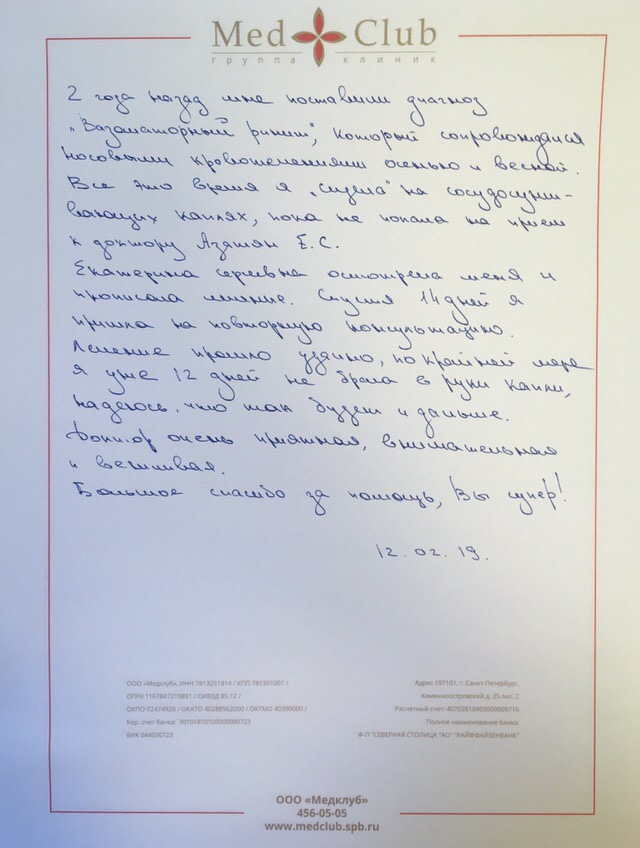 Med Club
группа клиник
2 года назад мне поставили диагноз
„Вазоматорный ринит", который сопровождался
носовыми кровотечениями осенью и весной.
Все это время я „сидела" на сосудосужи-
вающих каплях, пока не попала на прием
к доктору Азатян Е.С.
Екатерина сергеевна осмотрела меня и
прописала лечение. Спустя 14 дней я
пришла на повторную консультацию.
Лечение прошло удачно, по крайней мере
я уже 12 дней не брала в руки капли,
надеюсь, что так будет и дальше.
Доктор очень приятная, внимательная
и вежливая.
Большое спасибо за помощь, Вы супер!
12.02.19.
ООО «Медклуб», ИНН 7813251814 / КПП 781301001 /
ОГРН 1167847219891 / ОКВЭД 85.12 /
ОКПО 02474920 / ОКАТО 40288562000 / ОКТМО 40390000 /
Кор. счет банка: 30101810100000000723
БИК 044030723
Адрес 197101, г. Санкт-Петербург,
Каменноостровский д. 25 лит. 2
Расчетный счет: 40702810403000009716
Полное наименование банка:
Ф-Л "СЕВЕРНАЯ СТОЛИЦА "АО" "РАЙФФАЙЗЕНБАНК"
ООО «Медклуб»
456-05-05
www.medclub.spb.ru